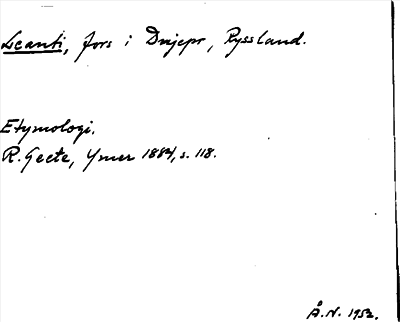 Leanti, fors i Dnjepr, Ryssland.
Etymologi.
R. Geete, Ymer 1884, s. 118.
Å.N. 1952.